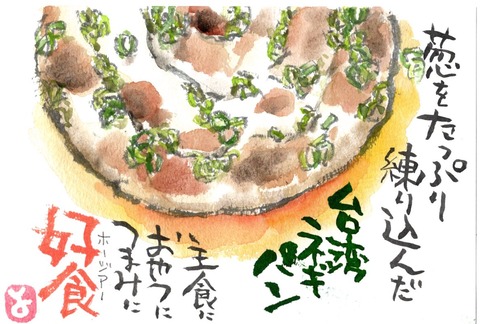 葱をたっぷり
練り込んだ
台湾
ネギ
パン
主食に
おやつに
つまみに
好食
ホーツアー